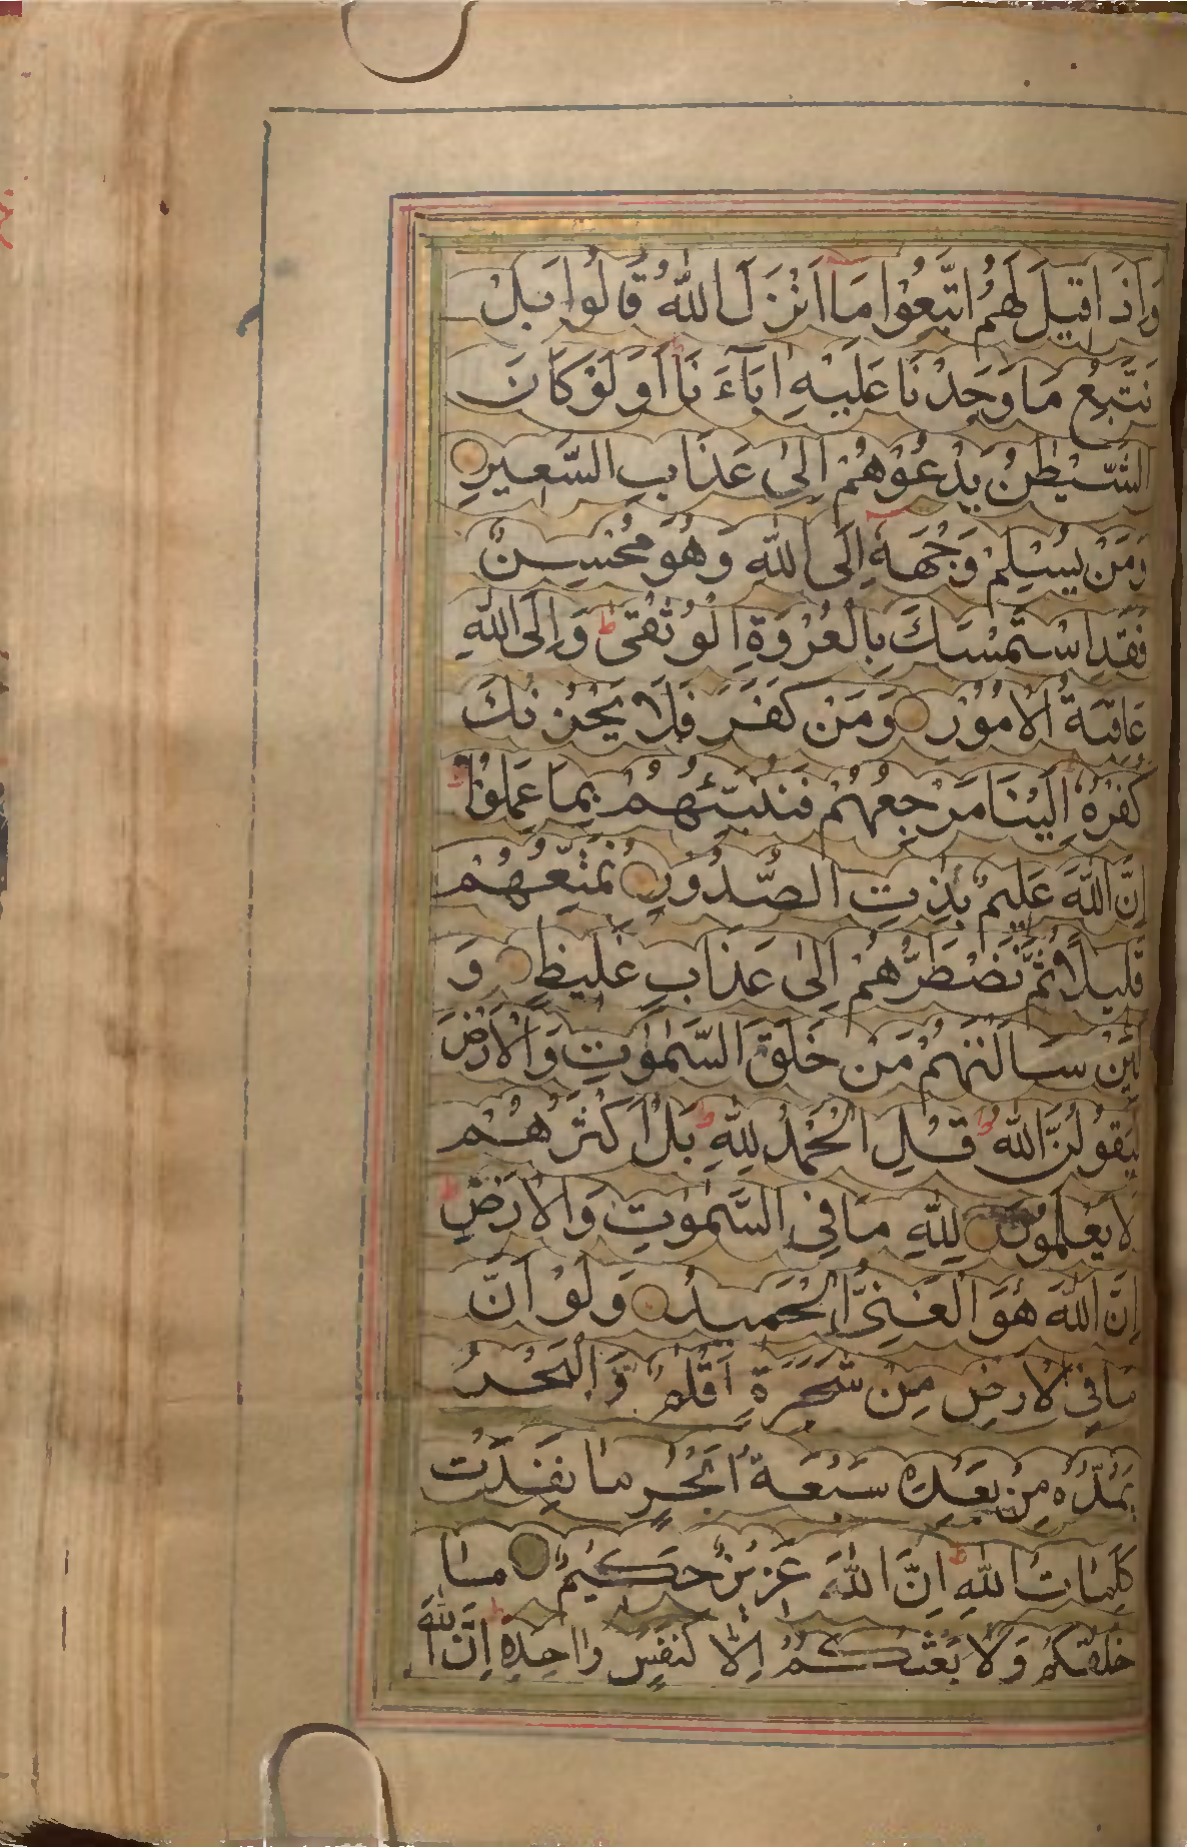 وَاِذَا قِيْلَ لَهُمُ اتَّبِعُوْا مَا اَنْزَلَ اللّٰهُ قَالُوْا بَلْ
نَتَّبِعُ مَا وَجَدْنَا عَلَيْهِ اٰبَآءَنَا اَوَلَوْ كَانَ
الشَّيْطٰنُ يَدْعُوْهُمْ اِلٰى عَذَابِ السَّعِيْرِ
وَمَنْ يُسْلِمْ وَجْهَهٗ اِلَى اللّٰهِ وَهُوَ مُحْسِنٌ
فَقَدِ اسْتَمْسَكَ بِالْعُرْوَةِ الْوُثْقٰى ط وَاِلَى اللّٰهِ
عَاقِبَةُ الْاُمُوْرِ وَمَنْ كَفَرَ فَلَا يَحْزُنْكَ
كُفْرُهٗ اِلَيْنَا مَرْجِعُهُمْ فَنُنَبِّئُهُمْ بِمَا عَمِلُوْا ط
اِنَّ اللّٰهَ عَلِيْمٌ بِذَاتِ الصُّدُوْرِ نُمَتِّعُهُمْ
قَلِيْلًا ثُمَّ نَضْطَرُّهُمْ اِلٰى عَذَابٍ غَلِيْظٍ وَ
لَئِنْ سَاَلْتَهُمْ مَنْ خَلَقَ السَّمٰوٰتِ وَالْاَرْضَ
لَيَقُوْلُنَّ اللّٰهُ ط قُلِ الْحَمْدُ لِلّٰهِ ط بَلْ اَكْثَرُهُمْ
لَا يَعْلَمُوْنَ لِلّٰهِ مَا فِي السَّمٰوٰتِ وَالْاَرْضِ ط
اِنَّ اللّٰهَ هُوَ الْغَنِيُّ الْحَمِيْدُ وَلَوْ اَنَّ
مَا فِي الْاَرْضِ مِنْ شَجَرَةٍ اَقْلَامٌ وَّالْبَحْرُ
يَمُدُّهٗ مِنْ بَعْدِهٖ سَبْعَةُ اَبْحُرٍ مَا نَفِدَتْ
كَلِمَاتُ اللّٰهِ ط اِنَّ اللّٰهَ عَزِيْزٌ حَكِيْمٌ مَا
خَلْقُكُمْ وَلَا بَعْثُكُمْ اِلَّا كَنَفْسٍ وَاحِدَةٍ ط اِنَّ اللّٰهَ